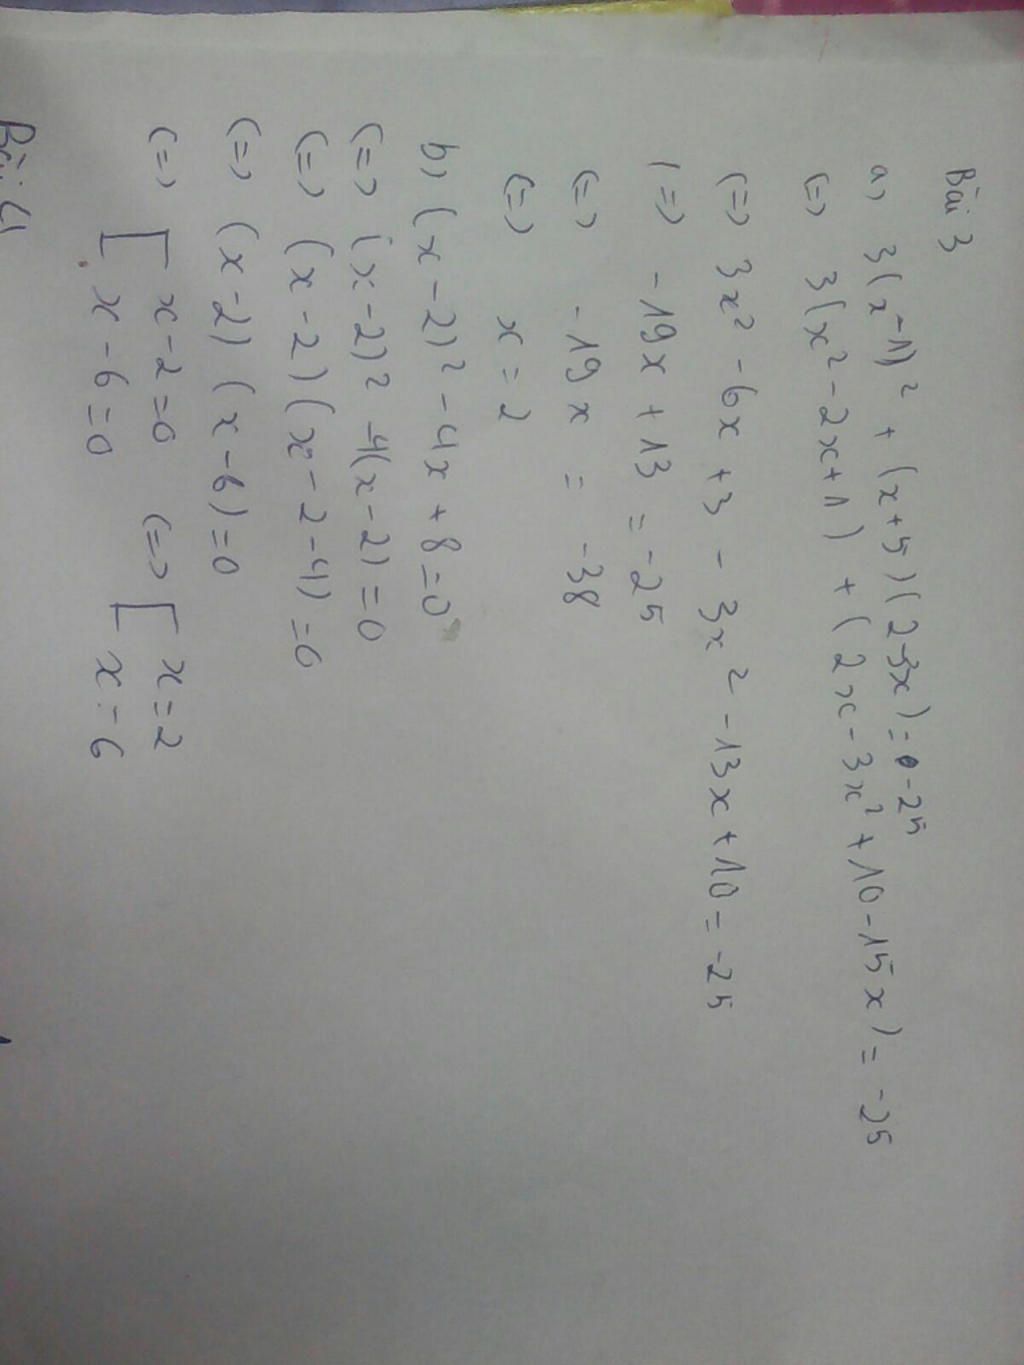 Bài 3
a) 3(x-1)² + (x+5)(2-3x) = -25
(=) 3(x² - 2x+1) + (2x - 3x² + 10 - 15x) = -25
(=) 3x² - 6x + 3 - 3x² - 13x + 10 = -25
(=) -19x + 13 = -25
(=) -19x = -38
(=) x = 2
b) (x-2)² - 4x + 8 = 0
(=) (x-2)² - 4(x-2) = 0
(=) (x-2)(x-2-4) = 0
(=) (x-2)(x-6) = 0
(=) [ x-2=0 (=) [ x=2
x-6=0 x=6
Bài 4